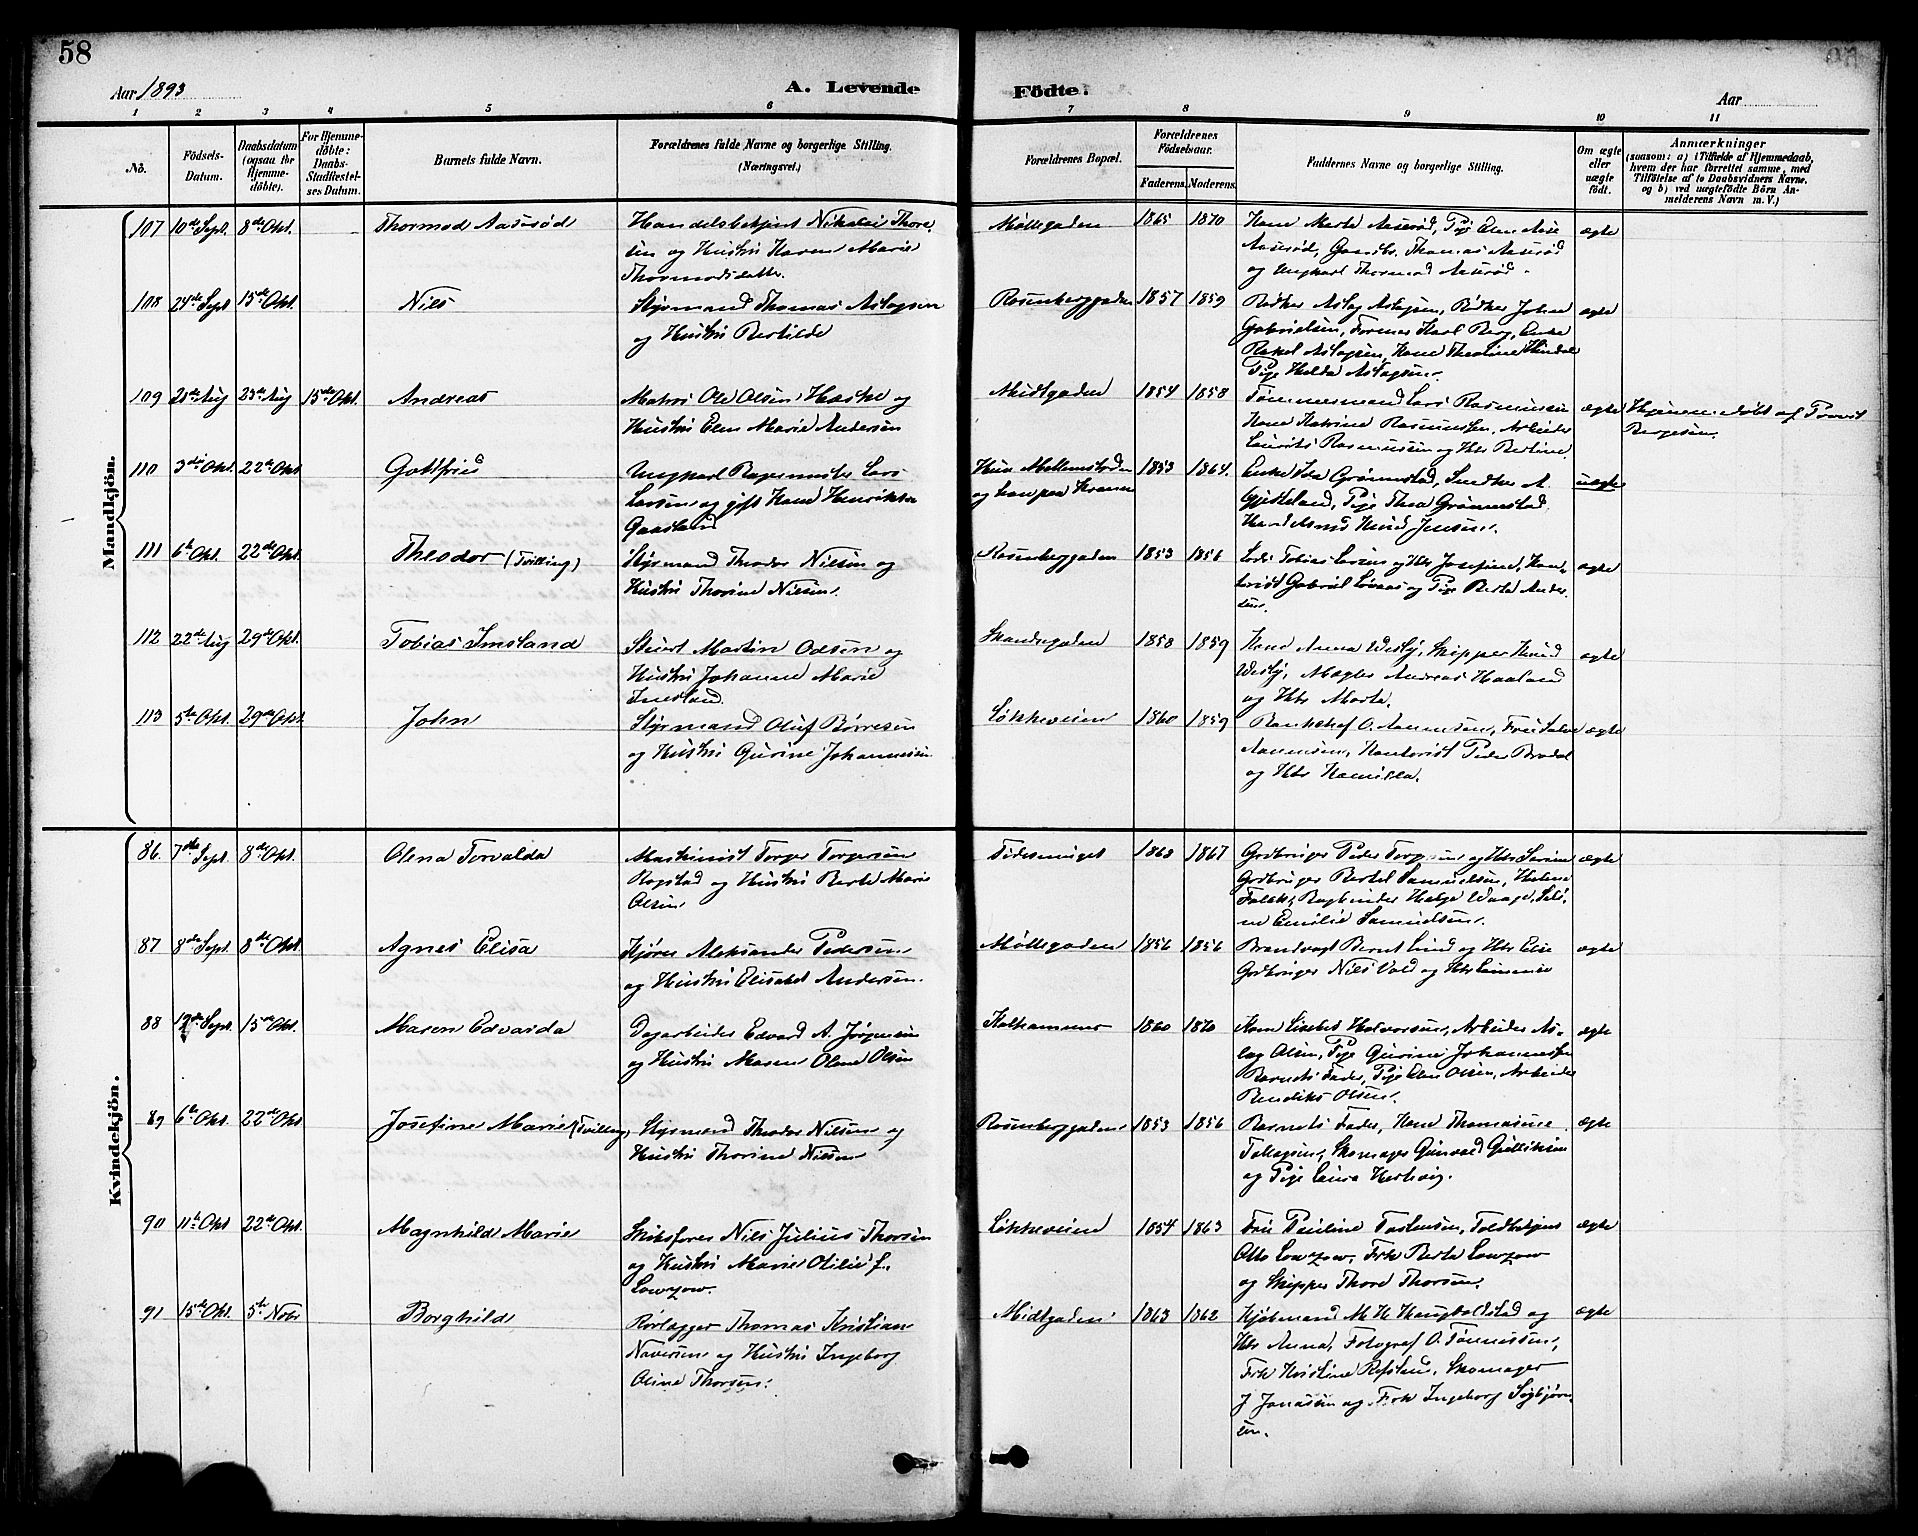 58
Aar 1893
A. Levende
Födte.
Aar
1 2 3 4 5 6 7 8 9 10 11
No.
Födsels-
Datum.
Daabsdatum
(ogsaa for
Hjemme-
döbte).
For Hjemme-
döbte:
Daabs-
Stadfæstel-
ses Datum.
Barnets fulde Navn.
Forældrenes fulde Navne og borgerlige Stilling.
(Næringsvei.)
Forældrenes Bopæl.
Forældrenes
Födselsaar.
Faderens. Moderens.
Faddernes Navne og borgerlige Stilling.
Om ægte
eller
uægte
födt.
Anmærkninger
(saasom: a) i Tilfælde af Hjemmedaab,
hvem der har forrettet samme, med
Tilföielse af to Daabsvidners Navne,
og b) ved uægtefödte Börn An-
melderens Navn m. V.)
Mandkjön.
107 10de Sept. 8de Okt. Thormod Aasesöd
Handelsbetjent Nikolai Thor-
sen og Hustru Karen Marie
Thormodsdatter.
Möllegaden 1865 1870
Kone Marta Aaserød, Pige Elen Aase
Aaserød, Gaardbr. Thomas Aaserød
og Ungkarl Thormod Aaserød.
ægte
108 24de Sept 15de Okt. Nils
Styrmand Thomas Aslagsen
og Hustru Bertilde
Rosenberggaden 1857 1859
Bødker Aslag Aslagsen, Bødker John
Gabrielsen, Former Karl Berg, Enke
Rakel Aslagsen, Kone Theoline
Pige Helda Aslagsen.
ægte
109 Aug Aug 15de Okt. Andreas
Matros Ole Olsen Hæske og
Hustru Elen Marie Andersen
Midtgaden 1854 1858
Tömmermand Lars Rasmussen
Kone Katrine Rasmussen, Arbeider
Laurits Rasmussen og Hst Bertine
ægte
Hjemmedøbt af Provst
Børgesen.
110 3de Okt. 22de Okt Gottfried
Ungkarl Rebermester Lars
Larsen og gift Kone Henrikke
Gaasland
1853 1864.
Enke Ida Grönnestad, Snedker A.
Gjetteland, Pige Thea Grönnestad
Knud Jensen.
uægte
111 6te Okt. 22de Okt. Theodor (Tvilling)
Styrmand Theodor Nilsen og
Hustru Thorine Nilsen.
Rosenberggaden 1853 1856
Lods Tobias Larsen og Hst Josefine, Kon-
torist Gabriel Løvaas og Pige Berta Ander-
sen.
ægte
112 22de Aug 29de Okt. Tobias Imsland
Stuert Martin Odsen og
Hustru Johanne Marie
Imsland.
Strandgaden 1858 1859
Kone Anna Visby, Skipper Knud
Visby, Mægler Andreas Haaland
og Hst Marta.
ægte
113 5te Okt. 29de Okt. John
Styrmand Oluf Børresen
og Hustru Gurine Johannesen
Løkkeveien 1860 1859
Bankchef O. Aanensen, Fru
Aanensen, Kontorist Peder Brodal
og Hst Kamilla.
ægte
Kvindekjön.
86. 7de Sept. 8de Okt. Olena Torvalda
Maskinist Torger Torgersen
Rogstad og Hustru Berte Marie
Olsen
1863 1867
Grdbruger Peder Torgersen og Hst Serine
Grdbruger Bertel Samuelsen, Helene
Falck, Bogbinder Helge Waage, Seli-
ne Emilie Samuelsen.
ægte
87 8de Sept. 8de Okt. Agnes Elisa
Kjører Aleksander Pedersen
og Hustru Elisabet Andersen.
Möllegaden 1856 1856
Brandvagt Bernt Lund og Hst Else
Grdbruger Nils Vold og Hst
ægte
88 12de Sept. 15de Okt. Maren Edvarda
Dagarbeider Edvard A. Jørgensen
og Hustru Maren Olene Olsen
Kalhammer 1860 1870
Kone Lisebet Halvorsen, Arbeider As-
lag Olsen, Pige Gurine Johannessen
Barnets Fader, Pige Elen Olsen, Arbeider
Bendiks Olsen.
ægte
89 6te Okt. 22de Okt Josefine Marie (Tvilling)
Styrmand Theodor Nilsen og
Hustru Thorine Nilsen
Rosenberggaden 1853 1856
Barnets Fader, Kone Thomasine
Tollagsen, Skomager Gunvald Gulliksen
og Pige Laura Hertvig.
ægte
90 11te Okt 22de Okt. Magnhild Marie
Skibsfører Nils Julius Thorsen
og Hustru Marie Otilie f.
Lowzow.
Løkkeveien 1854 1863
Fru Pauline Torkensen, Toldbetjent
Otto Lowzow, Frk Berta Lowzow
og Skipper Thord Thorsen.
ægte
91 15de Okt. 5te Novbr Borghild
Rørlægger Thomas Kristian
Naversen og Hustru Ingeborg
Oline Thorsen.
Midtgaden 1863 1862
Kjøbmand M. H. Haugvaldstad og
Hst Anna, Fotograf O. Tönnessen,
Frk Kristine Refslund, Skomager
J Jonassen og Frk Ingeborg Sigbjørn-
sen.
ægte